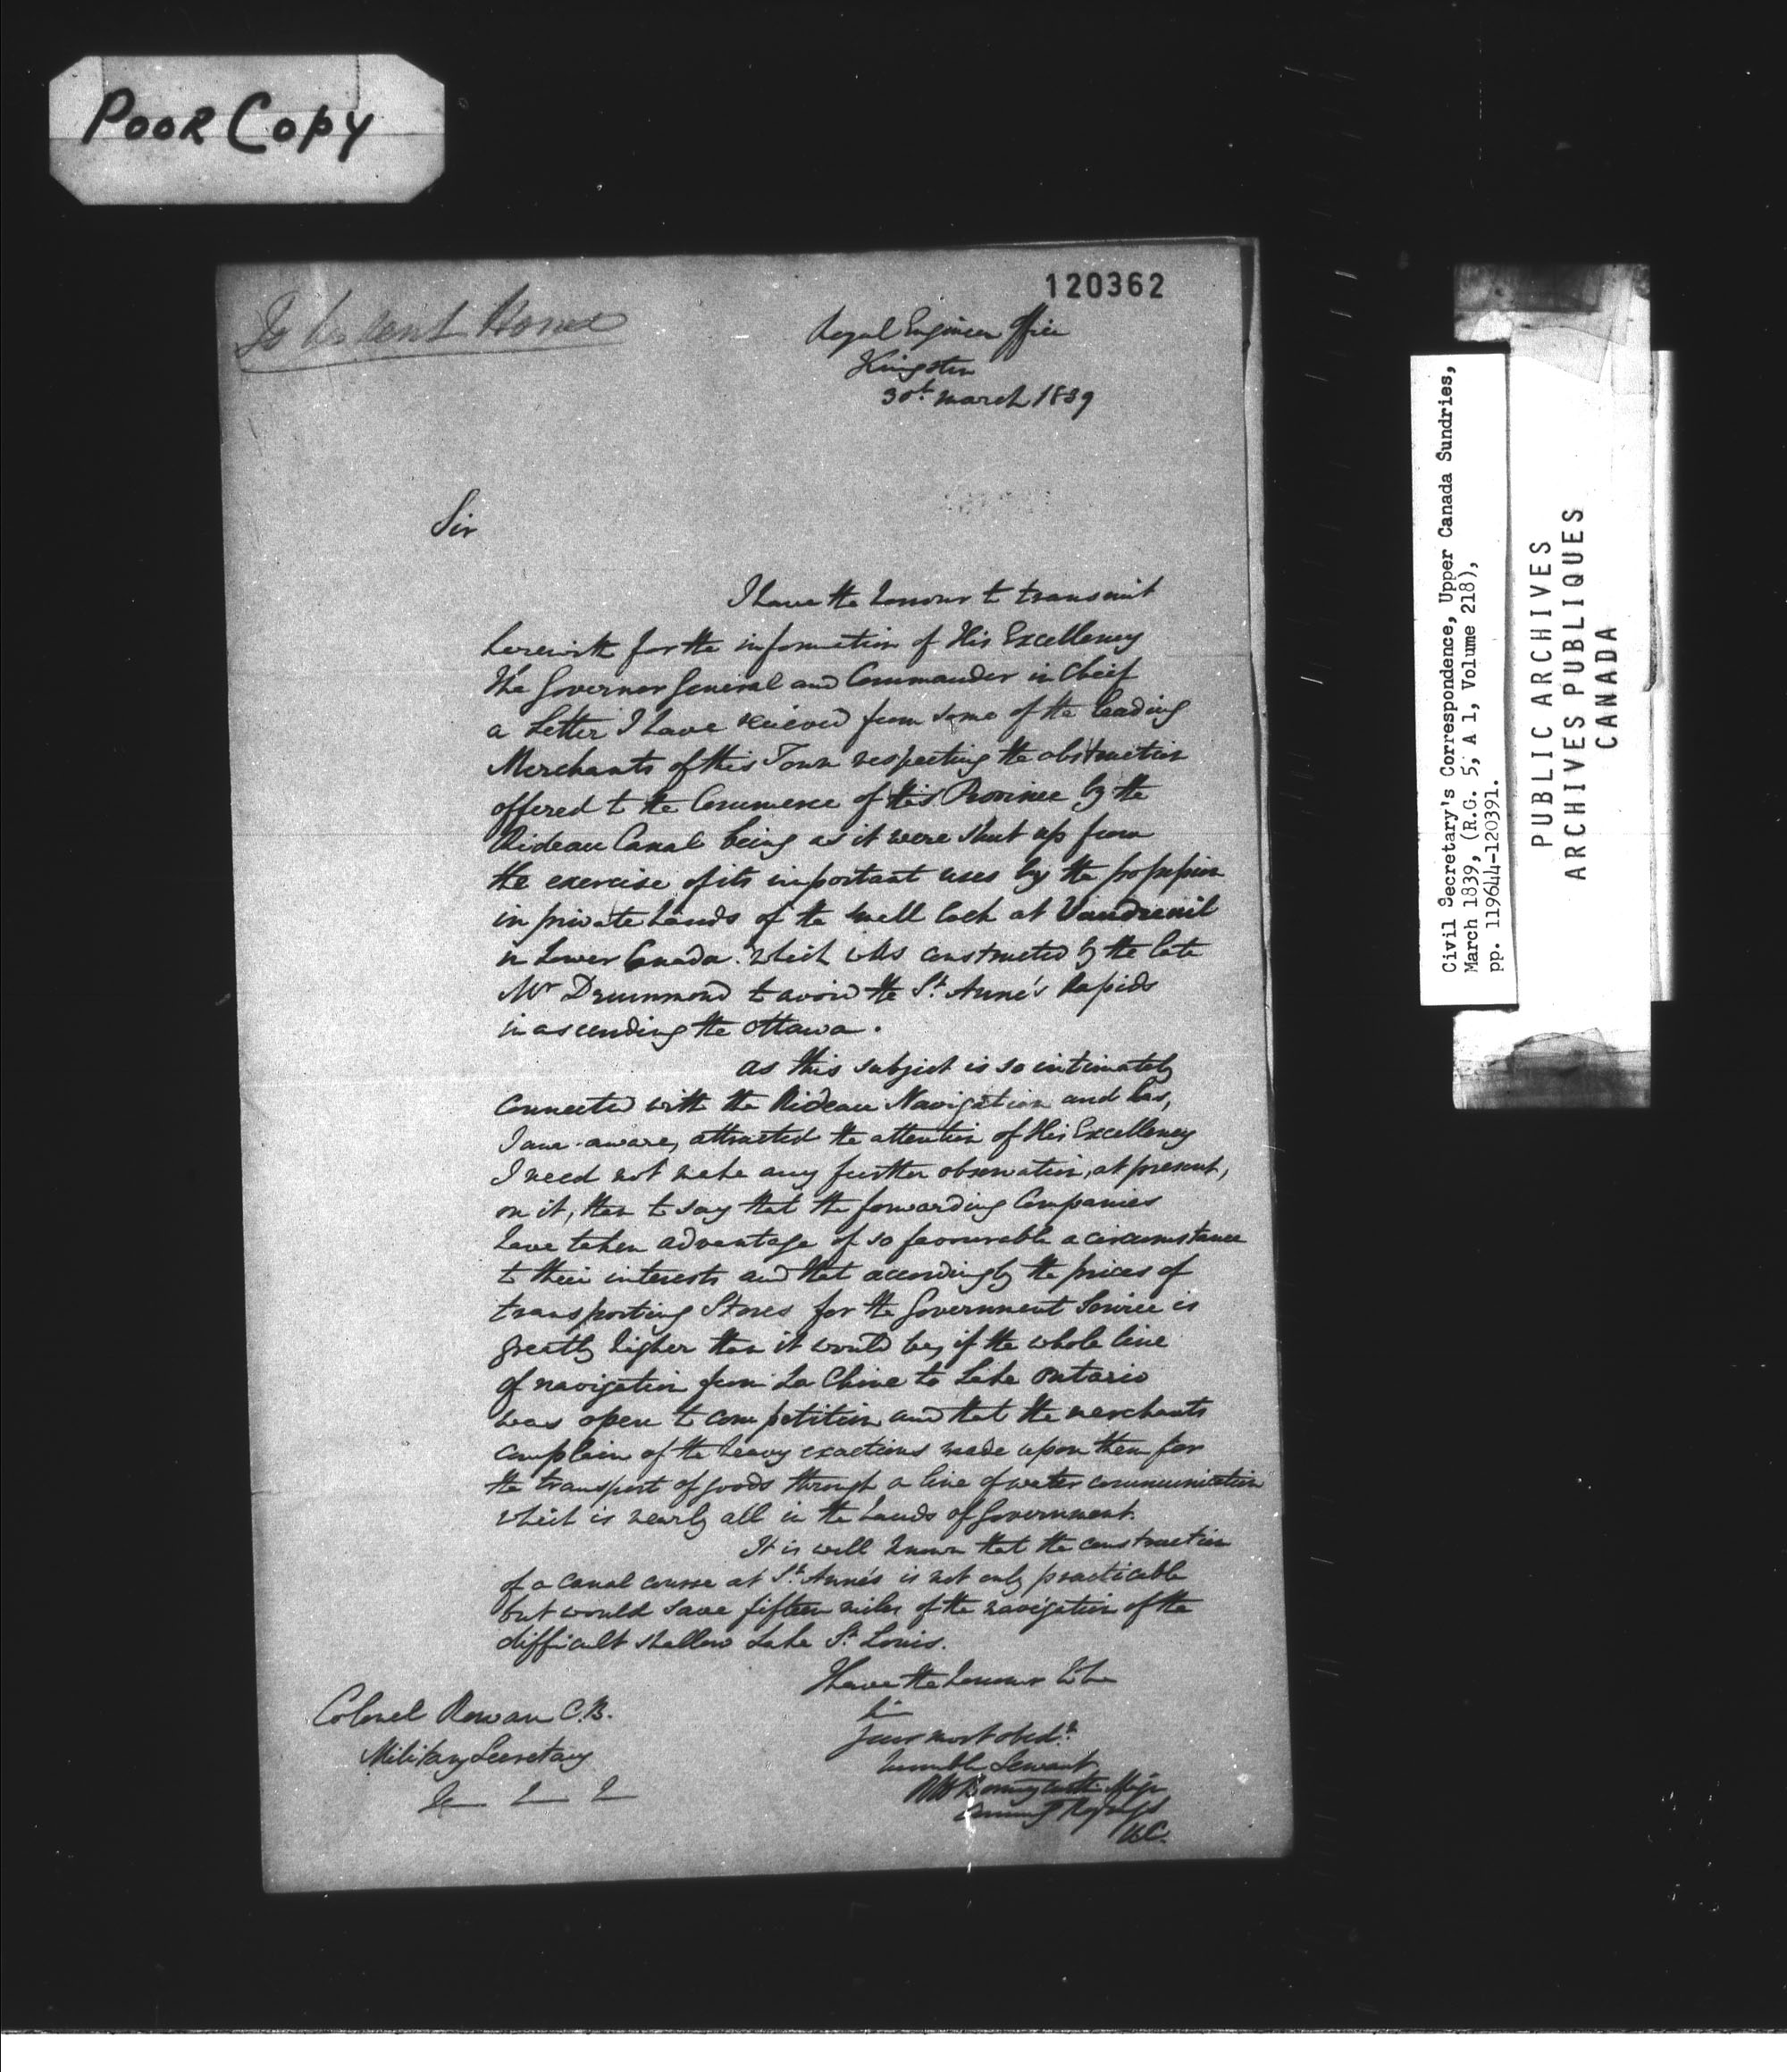 Poor Copy
120362
Royal Engineer Office
Kingston
30th March 1839
Sir
I have the honour to transmit
herewith for the information of His Excellency
the Governor General and Commander in Chief
a Letter I have received from some of the leading
Merchants of this Town respecting the obstruction
offered to the Commerce of this Province by the
Rideau Canal being as it were shut up from
the exercise of its important uses by the possession
in private hands of the small lock at Vaudreuil
in Lower Canada. Which was constructed by the late
Mr Drummond to avoid the St. Anne's Rapids
in ascending the Ottawa.
As this subject is so intimately
connected with the Rideau Navigation and has,
I am aware, attracted the attention of His Excellency
I need not make any further observation, at present,
on it, than to say that the forwarding Companies
have taken advantage of so favourable a circumstance
to their interests and that accordingly the prices of
transporting Stores for the Government Service is
greatly higher than it would be, if the whole line
of navigation from La Chine to Lake Ontario
was open to competition and that the merchants
complain of the heavy exactions made upon them for
the transport of goods through a line of water communication
which is nearly all in the hands of Government.
It is well known that the construction
of a canal course at St. Anne's is not only practicable
but would save fifteen miles of the navigation of the
difficult shallow Lake St. Louis.
I have the honour to be
Sir
Your most obedt.
humble Servant
RH Bonnycastle Major
Comming Roy Engs
U.C.
Colonel Rowan C.B.
Military Secretary
&c &c &c
Civil Secretary's Correspondence, Upper Canada Sundries,
March 1839, (R.G. 5, A 1, Volume 218),
pp. 119644-120391.
PUBLIC ARCHIVES
ARCHIVES PUBLIQUES
CANADA